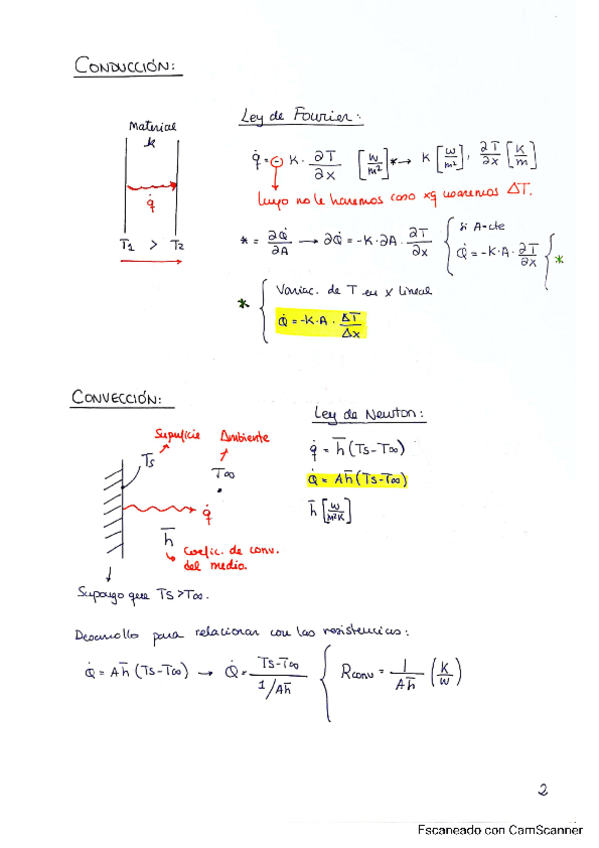 CONDUCCIÓN:
Material
k
q̇
T1 > T2
Ley de Fourier:
q̇ = - K · ∂T/∂x [W/m²] * → K [W/m²], ∂T/∂x [K/m]
luego no le haremos caso xq usaremos ΔT.
* = ∂Q̇/∂A → ∂Q̇ = -K·∂A · ∂T/∂x { si A=cte
Q̇ = -K·A · ∂T/∂x } *
* { Variac. de T en x lineal
Q̇ = -K·A · ΔT/Δx
CONVECCIÓN:
Superficie Ambiente
Ts T∞
q̇
h̅
Coefic. de conv.
del medio.
Supongo que Ts > T∞.
Ley de Newton:
q̇ = h̅ (Ts-T∞)
Q̇ = Ah̅ (Ts-T∞)
h̅ [W/m²K]
Desarrollo para relacionar con las resistencias:
Q̇ = Ah̅ (Ts-T∞) → Q̇ = Ts-T∞ / 1/Ah̅ { Rconv = 1/Ah̅ (K/W)
2
Escaneado con CamScanner